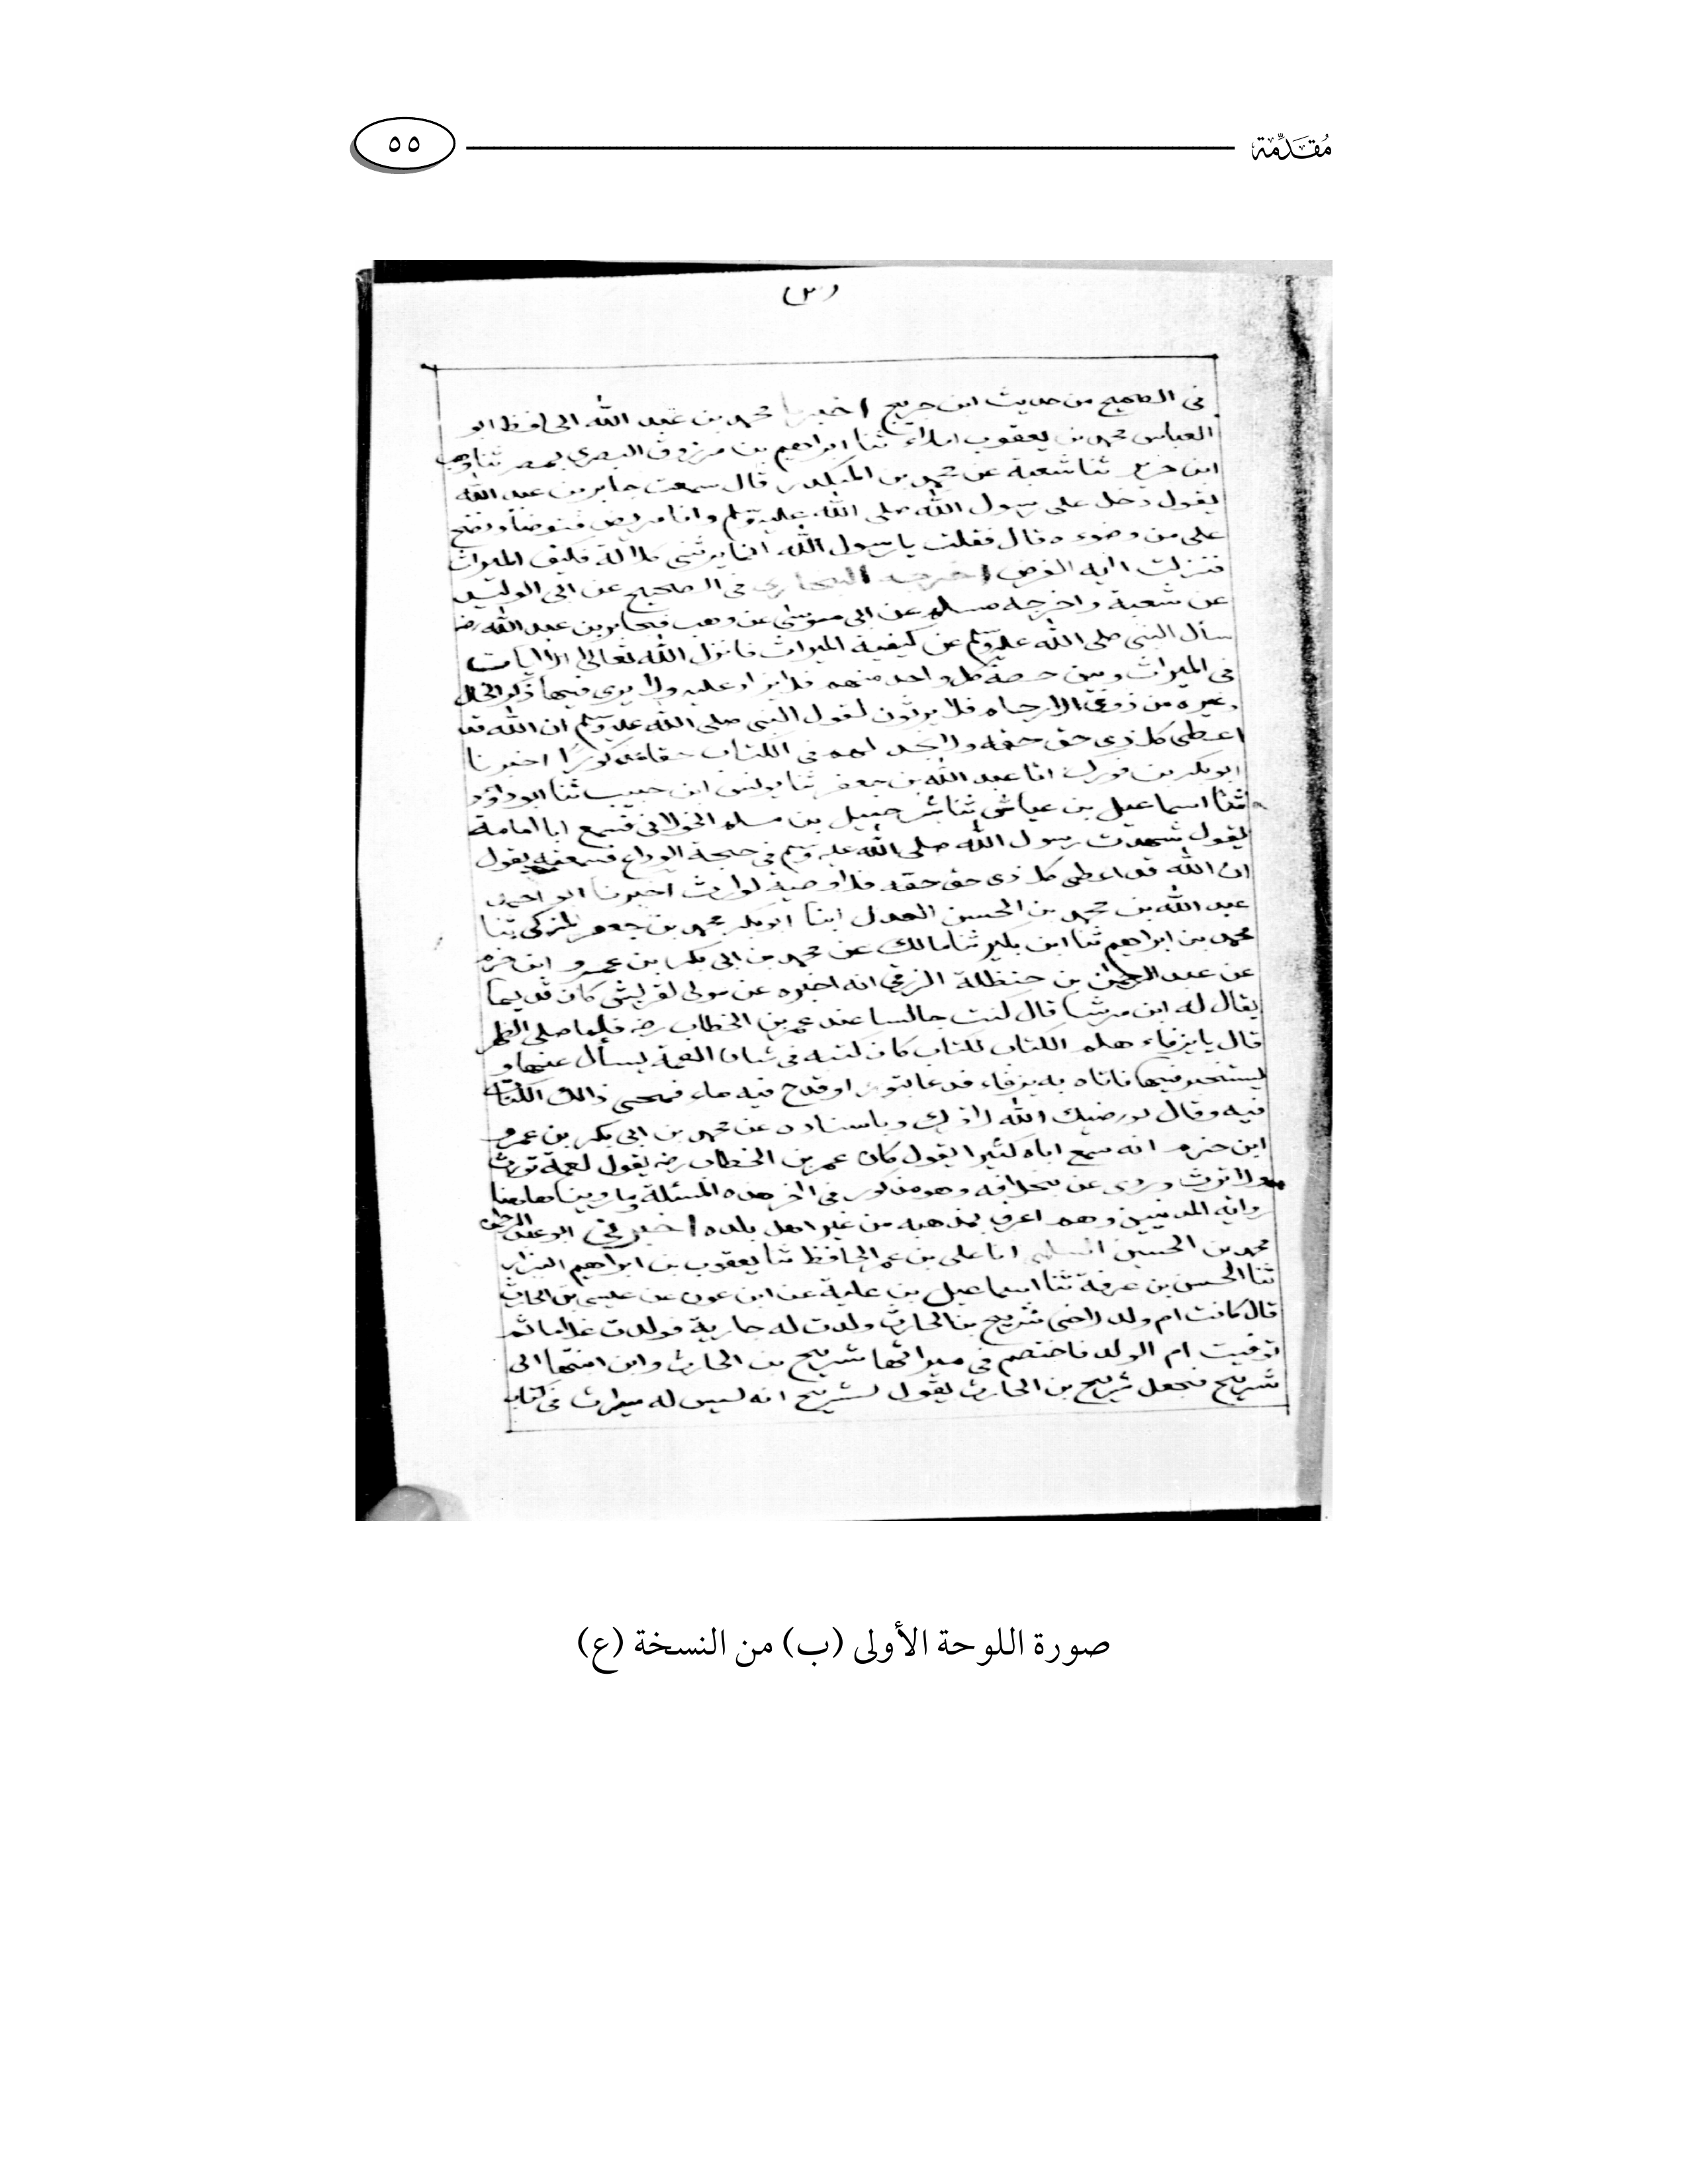 مُقَدِّمَة
٥٥
في الصحيح من حديث ابن جريج اخبرنا محمد بن عبد الله الحافظ ابو
العباس محمد بن يعقوب املاء ثنا ابراهيم بن مرزوق البصري بمصر ثنا وهب
ابن جرير ثنا شعبة عن محمد بن المنكدر قال سمعت جابر بن عبد الله
يقول دخل على رسول الله صلى الله عليه وسلم وانا مريض فتوضأ ونضح
على من وضوءه قال فقلت يا رسول الله انما يرثني كلالة فكيف الميراث
فنزلت اية الفرض اخرجه البخاري في الصحيح عن ابي الوليد
عن شعبة واخرجه مسلم عن ابي موسى عن وهب فجابر بن عبد الله رض
سأل النبي صلى الله عليه وسلم عن كيفية الميراث فانزل الله تعالى الايات
في الميراث وبين حصة كل واحد منهم فلا يزاد عليه ولا يرى فيها ذكر الخال
وغيره من ذوي الارحام فلا يرثون لقول النبي صلى الله عليه وسلم ان الله قد
اعطى كل ذي حق حقه ولا نجد لهم في الكتاب حقا مذكورا اخبرنا
ابو بكر بن فورك انا عبد الله بن جعفر ثنا يونس ابن حبيب ثنا ابو داؤد
ثنا اسماعيل بن عياش ثنا شرحبيل بن مسلم الخولاني فسمع ابا امامة
يقول شهدت رسول الله صلى الله عليه وسلم في حجة الوداع فسمعته يقول
ان الله قد اعطى كل ذي حق حقه فلا وصية لوارث اخبرنا ابو احمد
عبد الله بن محمد بن الحسن العدل ابنا ابو بكر محمد بن جعفر المزكي ثنا
محمد بن ابراهيم ثنا ابن بكير ثنا مالك عن محمد بن ابي بكر بن عمرو ابن حزم
عن عبد الرحمن بن حنظلة الزرقي انه اخبره عن مولى لقريش كان قديما
يقال له ابن مرسا قال كنت جالسا عند عمر بن الخطاب رضه فلما صلى الظهر
قال يا يرفاء هلم الكتاب للكتاب كان كتبه في شان العمة يسأل عنها و
يستخبر فيها فاتاه به يرفاء فدعا بتور او قدح فيه ماء فمحى ذالك الكتاب
فيه وقال لو رضيك الله اقرك وباسناده عن محمد بن ابي بكر بن عمرو
ابن حزم انه سمع اباه كثيرا يقول كان عمر بن الخطاب رضه يقول لعمة تورث
ولا ترث وروي عن بخلافه وهو مذكور في اخر هذه المسئلة وما روينا هاهنا
رواية المدنيين وهم اعرف بمذهبه من غير اهل بلده اخبرني ابو عبد الرحمن
محمد بن الحسين السلمي انا علي بن عمر الحافظ ثنا يعقوب بن ابراهيم البزار
ثنا الحسن بن عرفة ثنا اسماعيل بن علية عن ابن عون عن عيسى بن الحارث
قال كانت ام ولد لاخي شريح بن الحارث ولدت له جارية فولدت غلاما ثم
توفيت ام الولد فاختصم في ميراثها شريح بن الحارث وابن ابنتها الى
شريح فجعل شريح بن الحارث يقول لشريح انه ليس له ميراث في كتاب
صورة اللوحة الأولى (ب) من النسخة (ع)